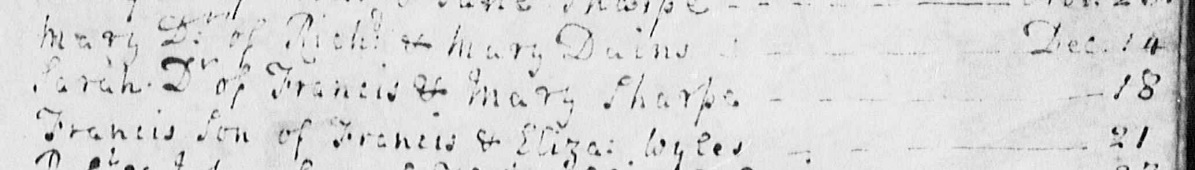 Sharpe
Mary Dr of Richd & Mary Dains Dec. 14
Sarah Dr of Francis & Mary Sharpe 18
Francis Son of Francis & Eliza: Wyles 21